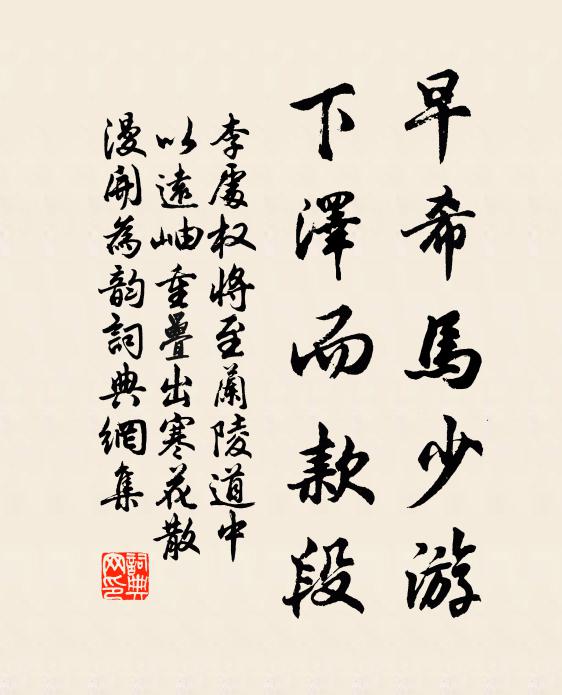 早希馬少游
下澤而款段
李處权將至蘭陵道中
以遠岫重疊出寒花散
漫開為韵詞典網集
詞典網印